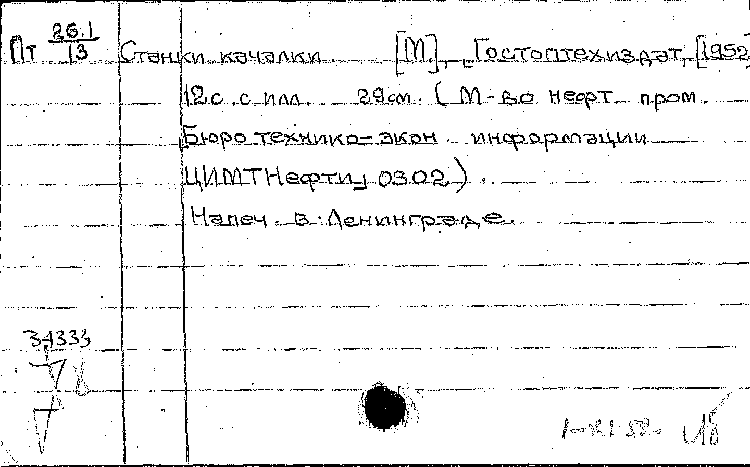 Пт 26.1/13 Станки качалки. [М], Гостоптехиздат, [1952]
12с. с илл. 29см. (М-во нефт. пром.
Бюро технико-экон. информации
ЦИМТНефти, 0302).
Напеч. в Ленинграде.
34333